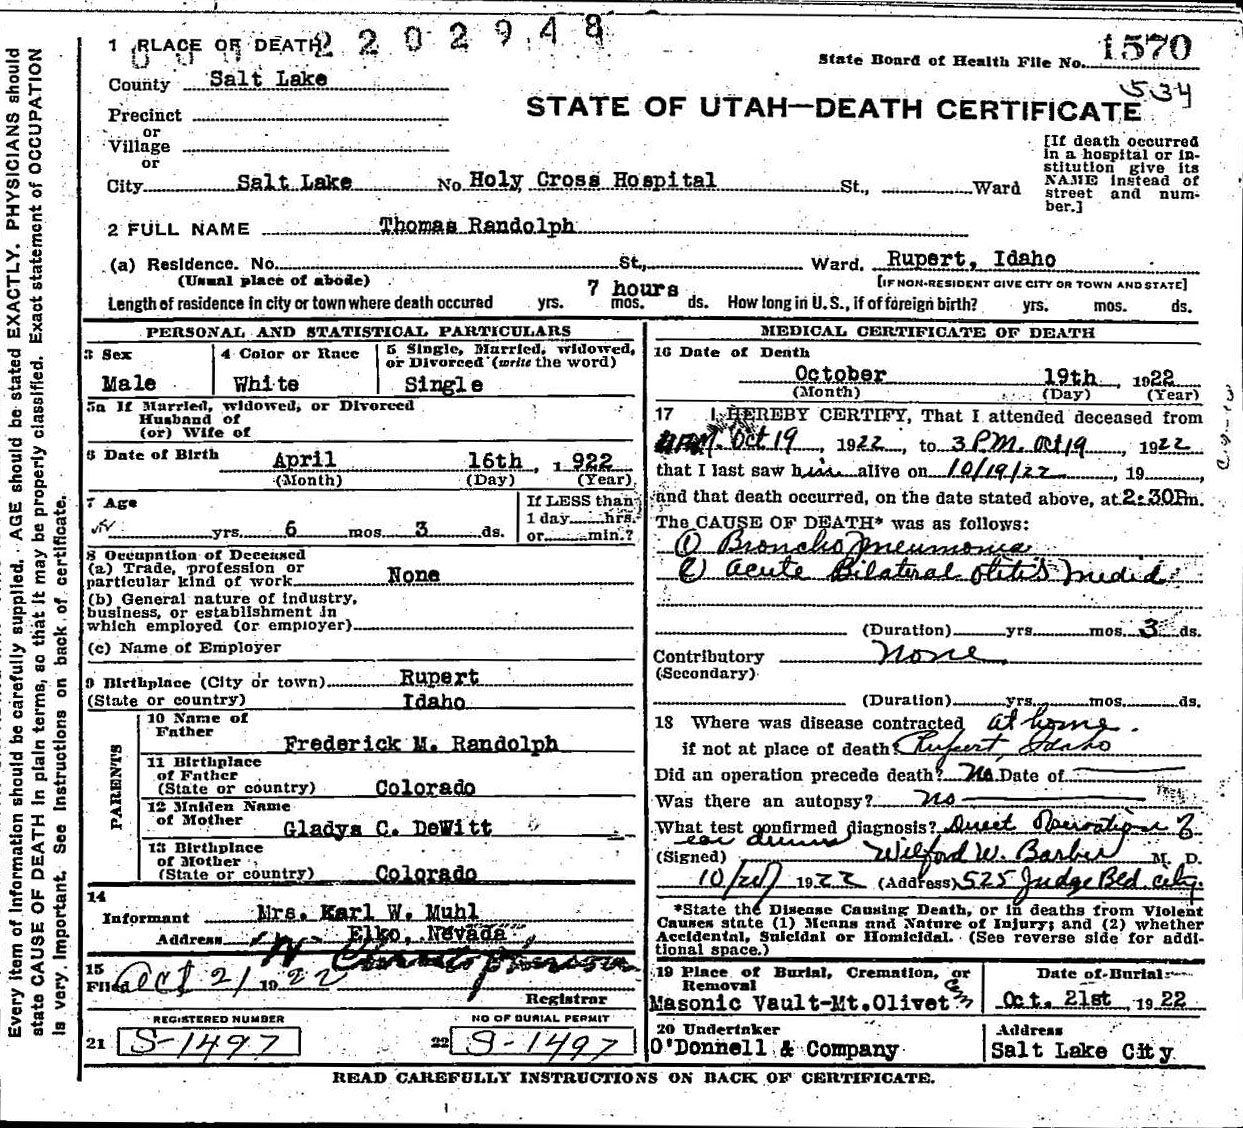 2 2 0 2 9 4 8
1 PLACE OF DEATH
State Board of Health File No. 1570
534
County Salt Lake
STATE OF UTAH—DEATH CERTIFICATE
Precinct
or
Village
or
City Salt Lake No Holy Cross Hospital St., Ward
[If death occurred
in a hospital or in-
stitution give its
NAME instead of
street and num-
ber.]
2 FULL NAME Thomas Randolph
(a) Residence. No. St., Ward. Rupert, Idaho
(Usual place of abode) [IF NON-RESIDENT GIVE CITY OR TOWN AND STATE]
7 hours
Length of residence in city or town where death occured yrs. mos. ds. How long in U. S., if of foreign birth? yrs. mos. ds.
PERSONAL AND STATISTICAL PARTICULARS
3 Sex
Male
4 Color or Race
White
5 Single, Married, widowed,
or Divorced (write the word)
Single
5a If Married, widowed, or Divorced
Husband of
(or) Wife of
6 Date of Birth April 16th, 1922
(Month) (Day) (Year)
7 Age
yrs. 6 mos. 3 ds.
If LESS than
1 day hrs.
or min.?
8 Occupation of Deceased
(a) Trade, profession or
particular kind of work None
(b) General nature of industry,
business, or establishment in
which employed (or employer)
(c) Name of Employer
9 Birthplace (City or town) Rupert
(State or country) Idaho
PARENTS
10 Name of
Father
Frederick M. Randolph
11 Birthplace
of Father
(State or country) Colorado
12 Maiden Name
of Mother
Gladys C. DeWitt
13 Birthplace
of Mother
(State or country) Colorado
14
Informant Mrs. Karl W. Muhl
Address Elko, Nevada
15
Filed Oct 21 1922
Registrar
REGISTERED NUMBER
21 S-1497
NO OF BURIAL PERMIT
22 S-1497
MEDICAL CERTIFICATE OF DEATH
16 Date of Death
October 19th, 1922
(Month) (Day) (Year)
17 I HEREBY CERTIFY, That I attended deceased from
Oct 19, 1922, to 3 P.M. Oct 19, 1922
that I last saw him alive on 10/19/22, 19
and that death occurred, on the date stated above, at 2:30 Pm.
The CAUSE OF DEATH* was as follows:
(1) Broncho pneumonia
(2) acute Bilateral otitis media
(Duration) yrs. mos. 3 ds.
Contributory None
(Secondary)
(Duration) yrs. mos. ds.
18 Where was disease contracted at home.
if not at place of death? Rupert, Idaho
Did an operation precede death? No. Date of
Was there an autopsy? no
What test confirmed diagnosis? Direct Operation of
ear drums
(Signed) Wilford W. Barber M. D.
10/20/ 1922 (Address) 525 Judge Bld. City.
*State the Disease Causing Death, or in deaths from Violent
Causes state (1) Means and Nature of Injury; and (2) whether
Accidental, Suicidal or Homicidal. (See reverse side for addi-
tional space.)
19 Place of Burial, Cremation, or
Removal
Masonic Vault-Mt.Olivet Cem
Date of Burial
Oct. 21st, 1922
20 Undertaker
O'Donnell & Company
Address
Salt Lake City
READ CAREFULLY INSTRUCTIONS ON BACK OF CERTIFICATE.
Every item of information should be carefully supplied. AGE should be stated EXACTLY. PHYSICIANS should
state CAUSE OF DEATH in plain terms, so that it may be properly classified. Exact statement of OCCUPATION
is very important. See instructions on back of certificate.